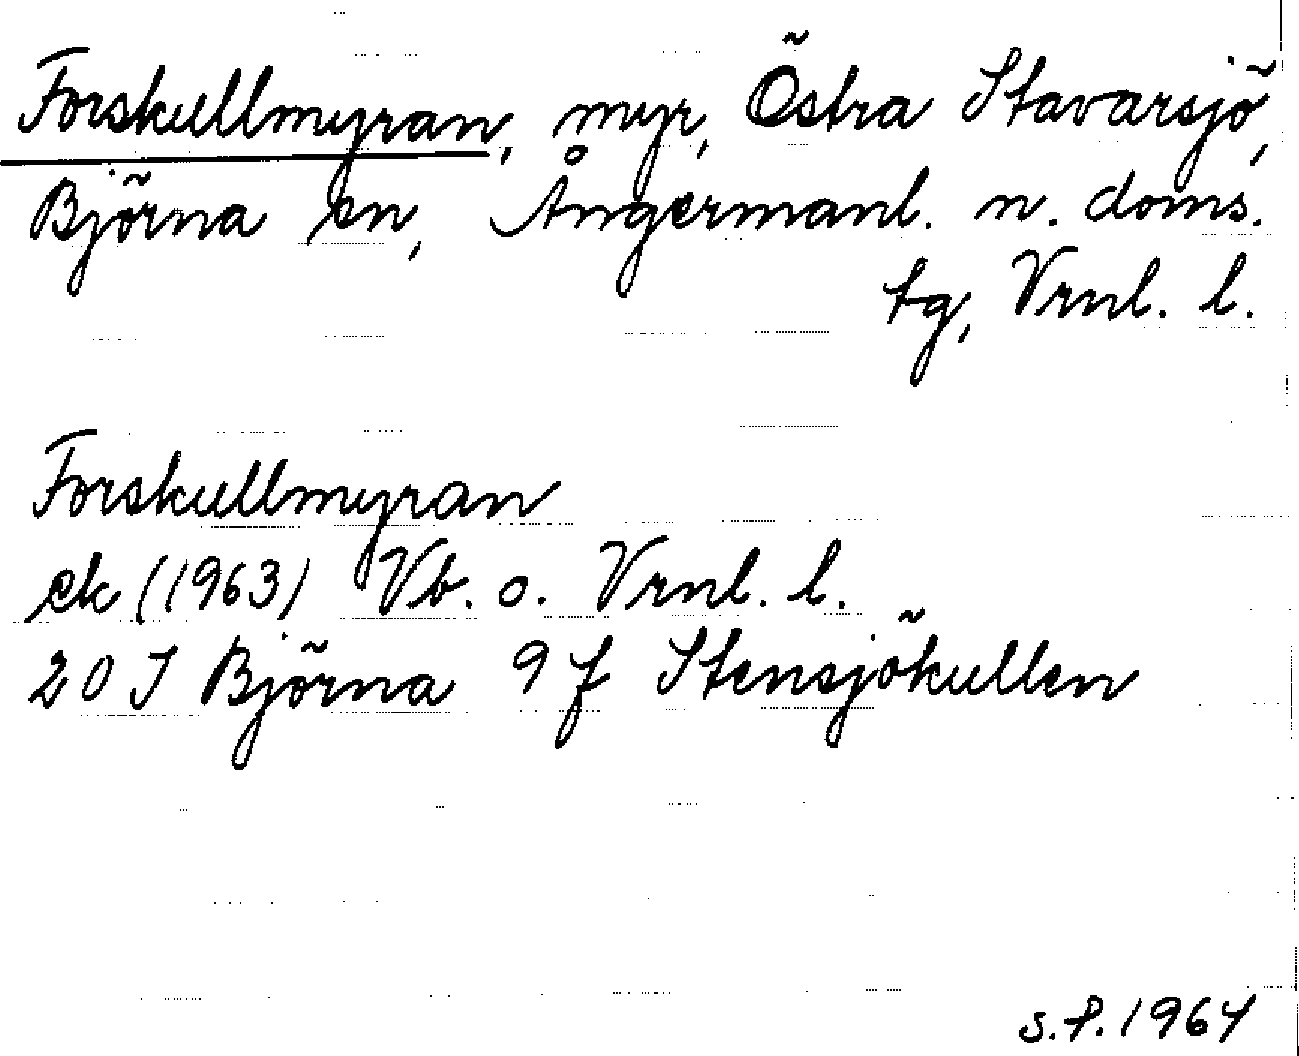 Forskullmyran, myr, Östra Stavarsjö,
Björna sn, Ångermanl. n. doms.
tg, Vrnl. l.
Forskullmyran
ek (1963) Vb. o. Vrnl. l.
20 J Björna 9 f Stensjökullen
s.f. 1964